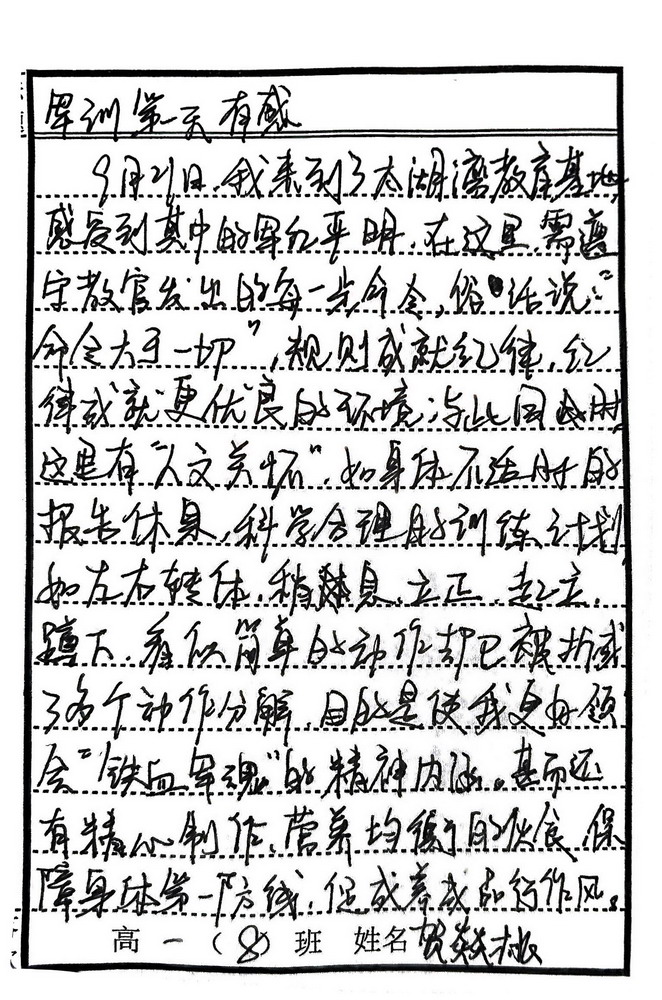 军训第一天有感
9月21日,我来到了太湖湾教育基地,
感受到其中的军纪严明,在这里,需遵
守教官发出的每一步命令,俗话说:“
命令大于一切”,规则成就纪律,纪
律成就更优良的环境;与此同时,
这里有“人文关怀”,如身体不适时的
报告休息,科学合理的训练计划,
如左右转体,稍息,立正,起立,
蹲下,看似简单的动作却已被拆成
了多个动作分解,目的是使我更好领
会“铁血军魂”的精神内涵。甚而还
有精心制作,营养均衡的伙食,保
障身体第一防线,促成养成品行作风。
高一(8)班 姓名贺